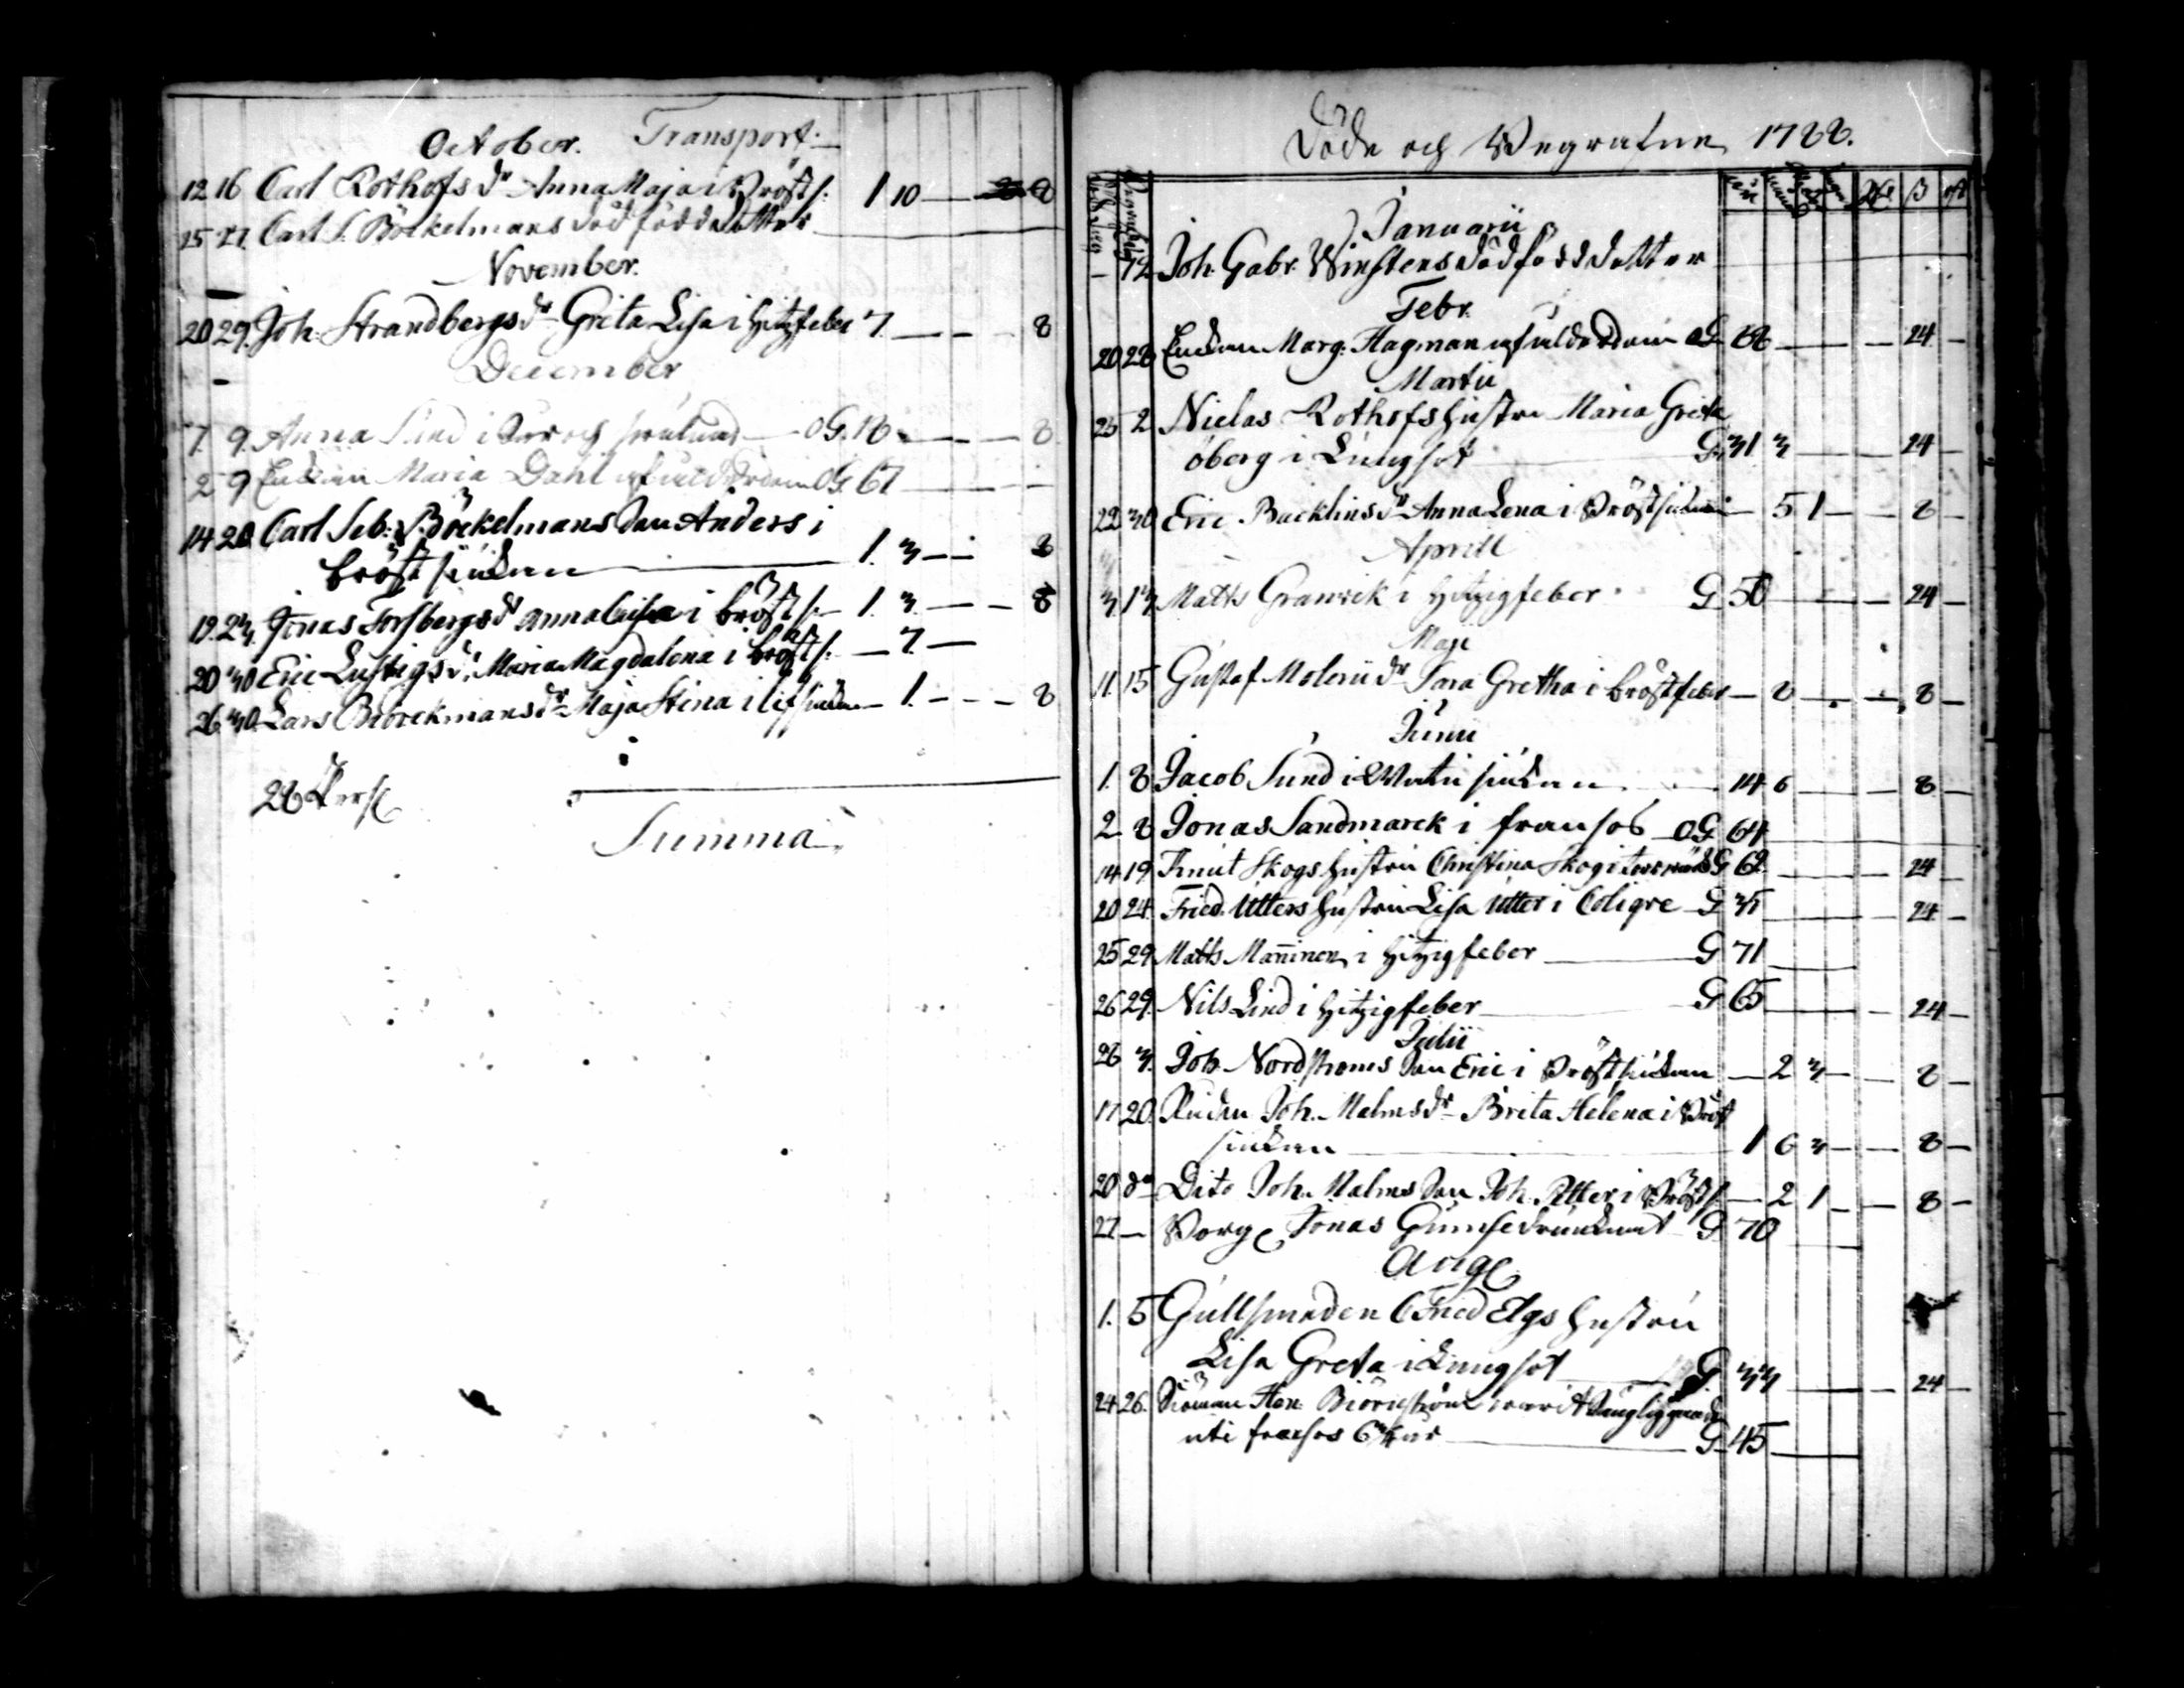 October. Transport.
12 16 Carl Rothofs dr Anna Maja i Bröst s. 1 10 — 8
15 21. Carl S. Böckelmans dödfödd dotter
November.
20 29. Joh. Strandbergs dr Greta Lisa i hitz feber 7 — — 8
December
7. 9. Anna Lund i — OG. 18 — — 8
2 9 Enckan Maria Dahl af ålderdom OG. 67 — —
14 20 Carl Seb: Böckelmans Son Anders i
bröst siukan — 1. 3 — — 8
19. 23. Jonas Forsbergs dr Anna Caisa i bröst s. — 1. 3. — — 8
20 30 Eric Lustigs dr Maria Magdalena i bröst s. — 7. —
26 30 Lars Brörckmans dr Maja Stina i lifsiukan — 1. — — 8
28 Pers.
Summa
Döde och Begrafne 1788.
Januarii
— 12 Joh. Gabr. Winstens dödfödd dotter
Febr.
20 28 Enckan Marg. Hagman af ålderdom OG 68 — — 24 —
Martii
25 2 Niclas Rothofs hustru Maria Greta
Öberg i Lungsot G. 31 3 — — 24 —
22 30 Eric Backlins dr Anna Lena i Bröstsiukan — 5 1 — — 8 —
Aprill
3 13 Matts Granvik i hitzigfeber G 50 — — 24 —
Maji
11. 15 Gustaf Molerii dr Sara Gretha i bröstfeber — 8 — — 8 —
Junii
1. 8 Jacob Lund i Watu siukan — 14 6 — — 8 —
2 8 Jonas Sandmarck i fransos OG 64
14 19 Knut Skogs hustru Christina Skog i G 62 — — 24 —
20 24 Fried. Utters hustru Lisa Utter i Coligve G 35 — — 24 —
25 29 Matts Manninen i hitzigfeber — G 71 —
26 29. Nils Lind i hitzigfeber — G. 65 — — 24 —
Julii
28 3. Joh. Nordströms Son Eric i Bröstsiukan — 2 3 — — 8 —
17 20. Joh. Malms dr Brita Helena i Bröst
siukan — 1 6 3 — — 8 —
20 do Dito Joh. Malms Son Joh. Petter i Bröst s. — 2 1 — — 8 —
27 — Borg. Jonas Gumse drunknat G 70 —
Aug.
1. 5 Gullsmeden C Fried Elgs hustru
Lisa Greta i Lungsot G 33 — — 24 —
24. 26. Siöman Hen. Biörnström warit Sängliggande
uti fransos 6 3/4 år — G 45 —